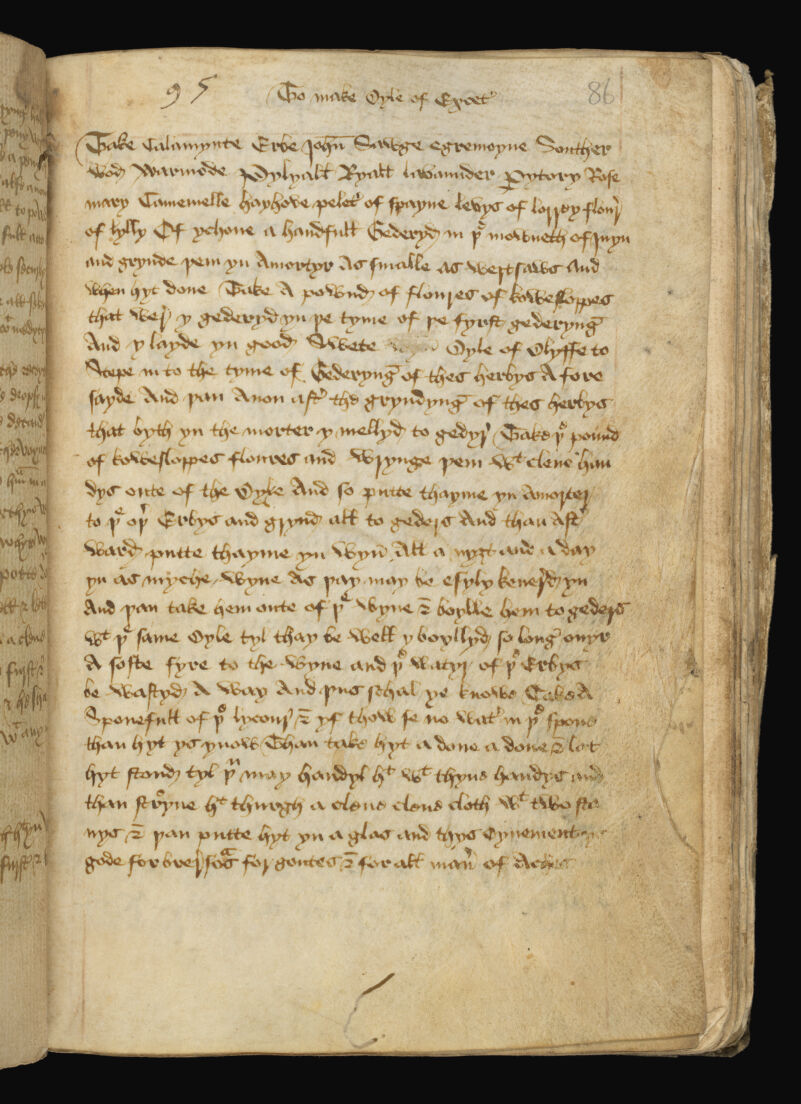 95 To make Oyle of Excet' 86
Take Calamynte Erbe John Sawge egremoyne Souther
wod Warmode Pylyall Ryall lavamider Perytory Rose
mary Camemelle hayhove pelet' of spayne levys of lorrey flour
of lylly Of ychone a handfull Gederyd in þe moneth of Juyn
and grynde þem yn A morter As smalle as wertsaws And
when hyt done Take A pownd of floures of kowesloppes
that wer y gederyd yn þe tyme of þe fyrst gederyng
And y layde yn good Swete Oyle of Olyffe to
Stepe in to the tyme of Gederyng of thes herbys A fore
sayde And þan Anon aft' the gryndyng of thes herbys
that byth yn the morter y mellyd to gedyr Take þe pound
of kowesloppes floures and wrynge þem wt clene han
dys oute of the Oyle And so putte thayme yn A morter
to þe oþr Erbys and grynd all to geders And than Aft'
ward putte thayme yn wyn All a nygt and a day
yn as myche wyne As þay may be esyly kenerd yn
And þan take hem oute of þe wyne & boylle hem to geders
wt þe same Oyle tyl thay be well y boyllyd so long ouyr
A softe fyre to the wyne and þe watyr of þe Erbys
be wastyd A way And þus schal ye knowe Take A
Sponefull of þe lycour & yf thow se no wat' in þe spone
than hyt ys ynow Than take hyt a done a done & let
hyt stond tyl þu may handyl ht wt thyne handys and
than streyne ht thurgh a clene clene cloth wt two sta
nys & þan putte hyt yn a glas and thys Oynement
gode for for goutes & for all man' of Aches